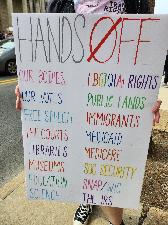 HANDS OFF
OUR BODIES LGBTQIA+ RIGHTS
OUR VOTES PUBLIC LANDS
FREE SPEECH IMMIGRANTS
THE COURTS MEDICAID
LIBRARIES MEDICARE
MUSEUMS SOC SECURITY
EDUCATION SNAP/WIC
SCIENCE THE IRS